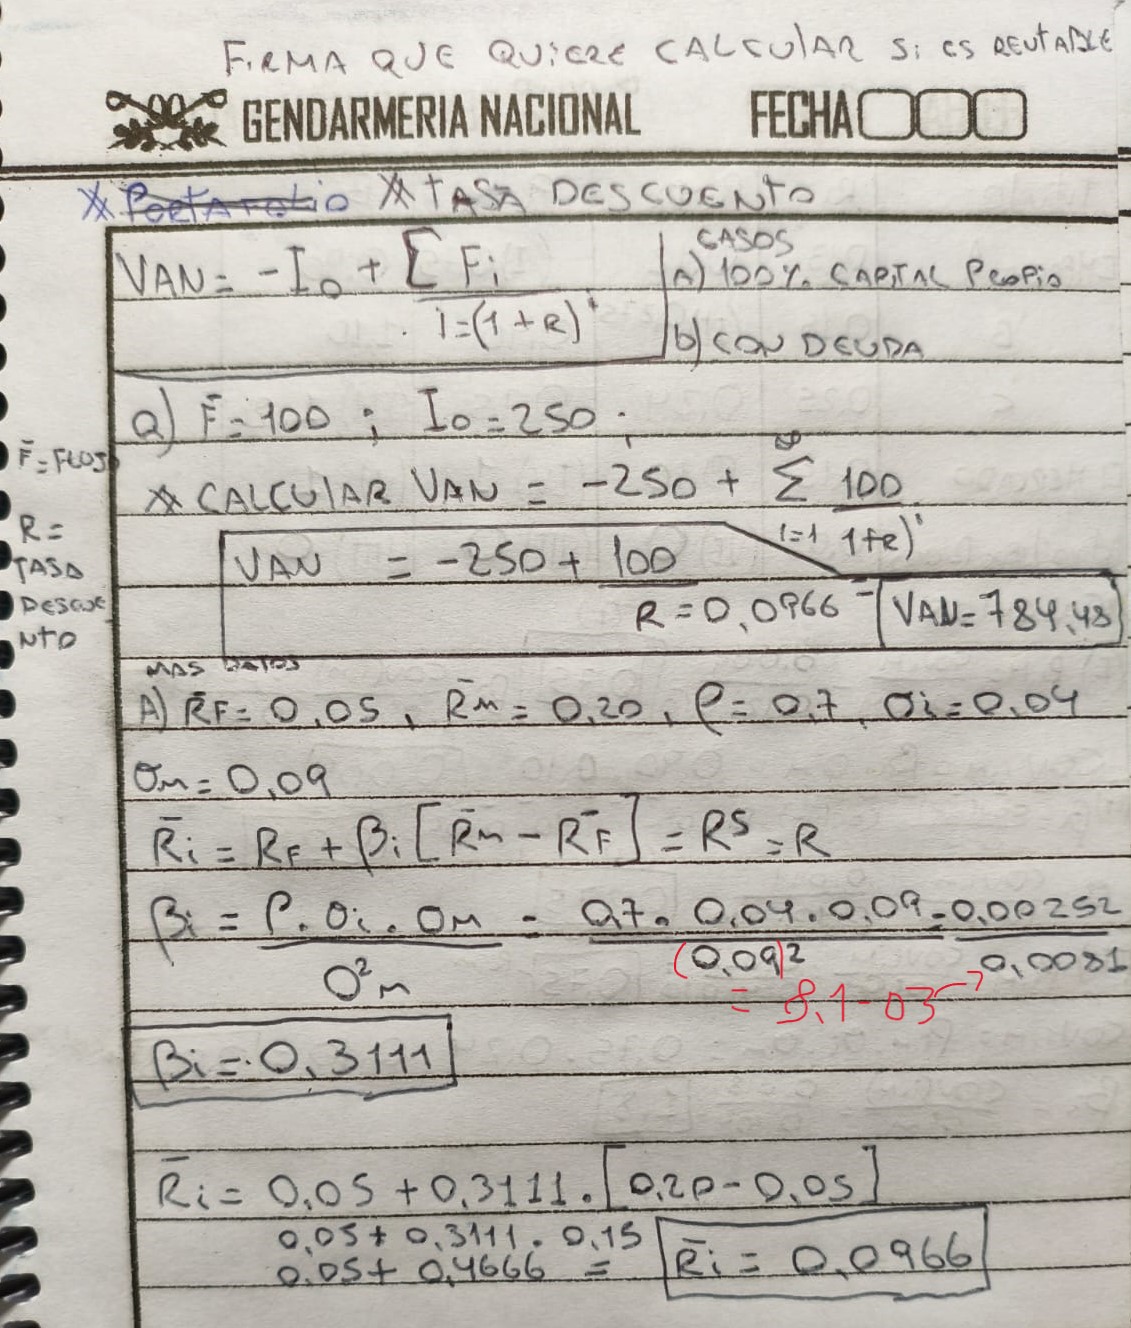 FIRMA QUE QUIERE CALCULAR Si ES RENTABLE
GENDARMERIA NACIONAL FECHA
Portafolio TASA DESCUENTO
VAN = -I₀ + Σ Fi
i=(1+R)ⁱ
CASOS
a) 100% CAPITAL PROPiO
b) CON DEUDA
a) F̄ = 100 ; I₀ = 250 ;
F̄ = FLUJ
CALCULAR VAN = -250 + ∞ Σ 100
i=1 1+R)ⁱ
R = TASA DESCUENTO
VAN = -250 + 100
R = 0,0966 - VAN = 784,48
MAS DATOS
A) R̄F = 0,05 , R̄m = 0,20 , ρ = 0,7 , σi = 0,04
σm = 0,09
R̄i = RF + βi [R̄m - R̄F] = RS = R
βi = ρ.σi.σm = 0,7. 0,04.0,09 = 0,00252
σ²m (0,09)² 0,0081
= 8,1-03
βi = 0,3111
R̄i = 0,05 + 0,3111. [0,20 - 0,05]
0,05 + 0,3111. 0,15
0,05 + 0,4666 = R̄i = 0,0966